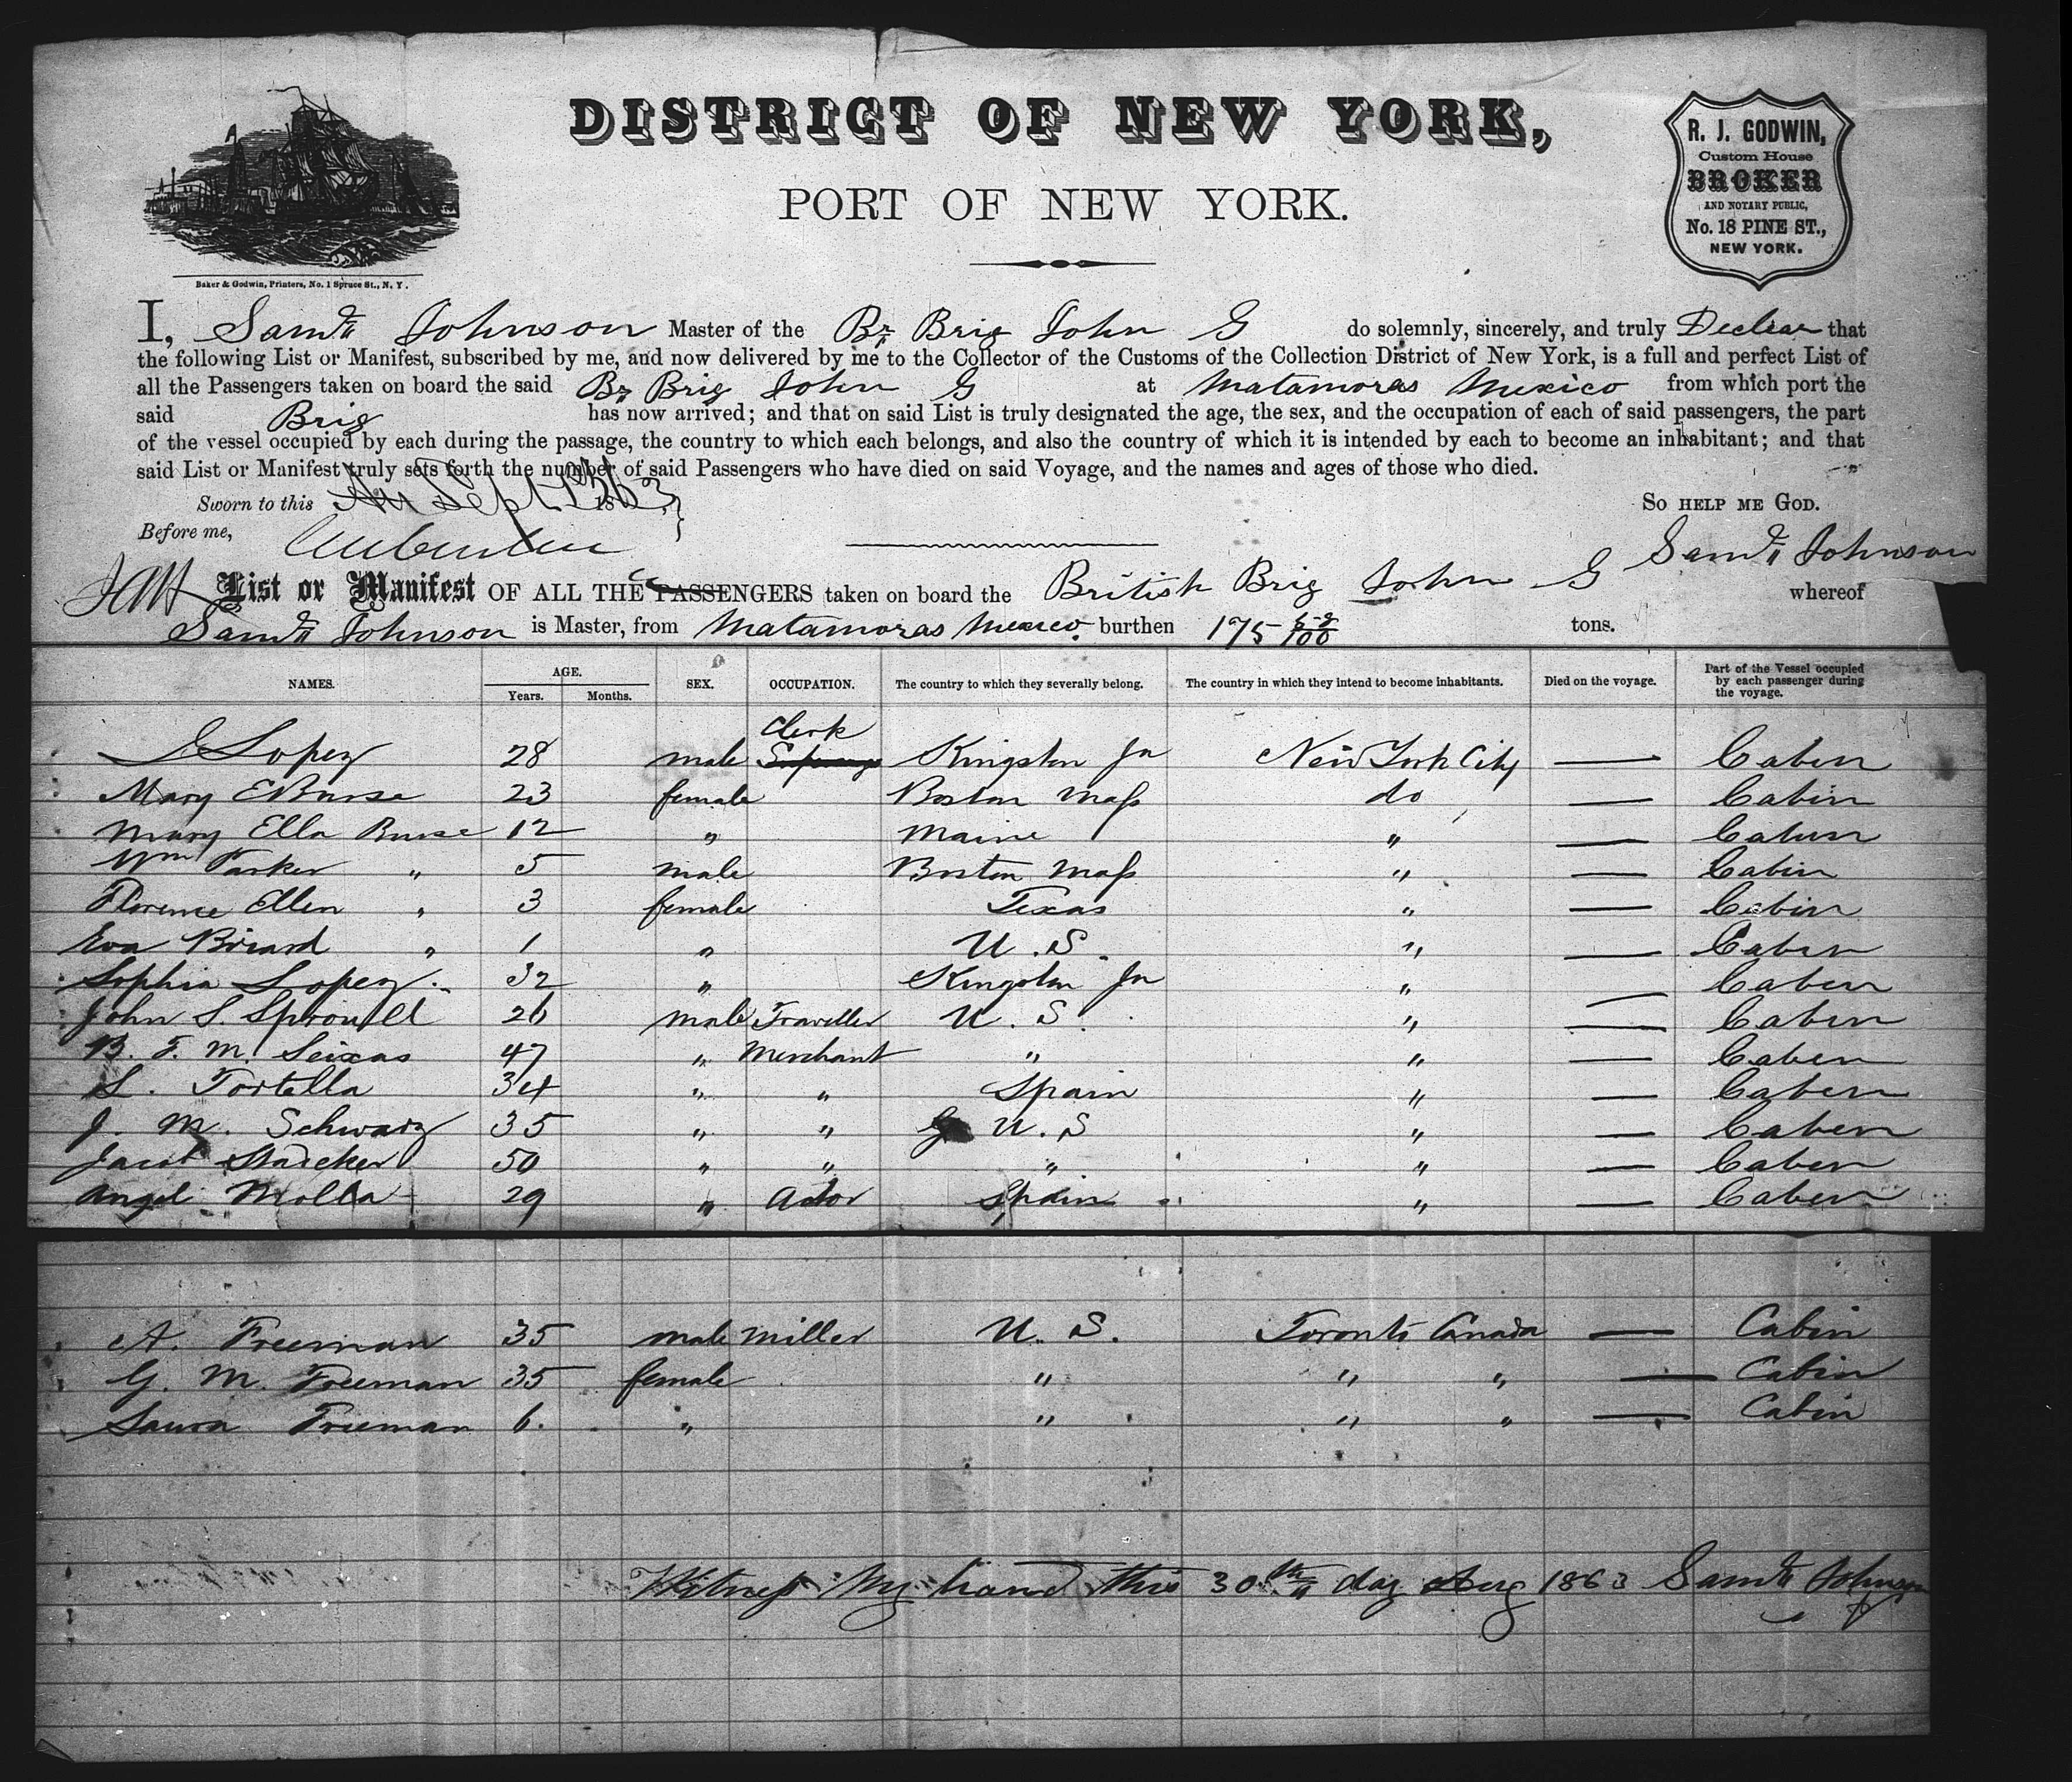 DISTRICT OF NEW YORK,
PORT OF NEW YORK.
R. J. GODWIN,
Custom House
BROKER
AND NOTARY PUBLIC,
No. 18 PINE ST.,
NEW YORK.
Baker & Godwin, Printers, No. 1 Spruce St., N. Y.
I, Saml Johnson Master of the Br Brig John G do solemnly, sincerely, and truly Declear that
the following List or Manifest, subscribed by me, and now delivered by me to the Collector of the Customs of the Collection District of New York, is a full and perfect List of
all the Passengers taken on board the said Br Brig John G at Matamoras Mexico from which port the
said Brig has now arrived; and that on said List is truly designated the age, the sex, and the occupation of each of said passengers, the part
of the vessel occupied by each during the passage, the country to which each belongs, and also the country of which it is intended by each to become an inhabitant; and that
said List or Manifest truly sets forth the number of said Passengers who have died on said Voyage, and the names and ages of those who died.
Sworn to this Sept 1863 So HELP ME GOD.
Before me,
Saml Johnson
List or Manifest OF ALL THE PASSENGERS taken on board the British Brig John G whereof
Saml Johnson is Master, from Matamoras Mexico burthen 175 52/100 tons.
NAMES. AGE. Years. Months. SEX. OCCUPATION. The country to which they severally belong. The country in which they intend to become inhabitants. Died on the voyage. Part of the Vessel occupied by each passenger during the voyage.
Clerk
Lopez 28 male Kingston Ja New York City — Cabin
Mary E Burse 23 female Boston Mass do — Cabin
Mary Ella Burse 12 " Maine " — Cabin
Wm Parker " 5 male Boston Mass " — Cabin
Florence Ellen " 3 female Texas " — Cabin
Eva " 1 " U. S. " — Cabin
Sophia Lopez 32 " Kingston Ja " — Cabin
John S. Sprouell 26 male Traveller U. S. " — Cabin
B. F. M. Seixas 47 " Merchant " " — Cabin
S. Tortella 34 " " Spain " — Cabin
J. M. Schwarz 35 " " U. S " — Cabin
Jacob Starcker 50 " " " " — Cabin
Angel Molla 29 " Actor Spain " — Cabin
A. Freeman 35 male Miller U. S. Toronto Canada — Cabin
G. M. Freeman 35 female " " " — Cabin
Laura Freeman 6 " " " " — Cabin
Witness My hand this 30th day Aug 1863 Saml Johnson